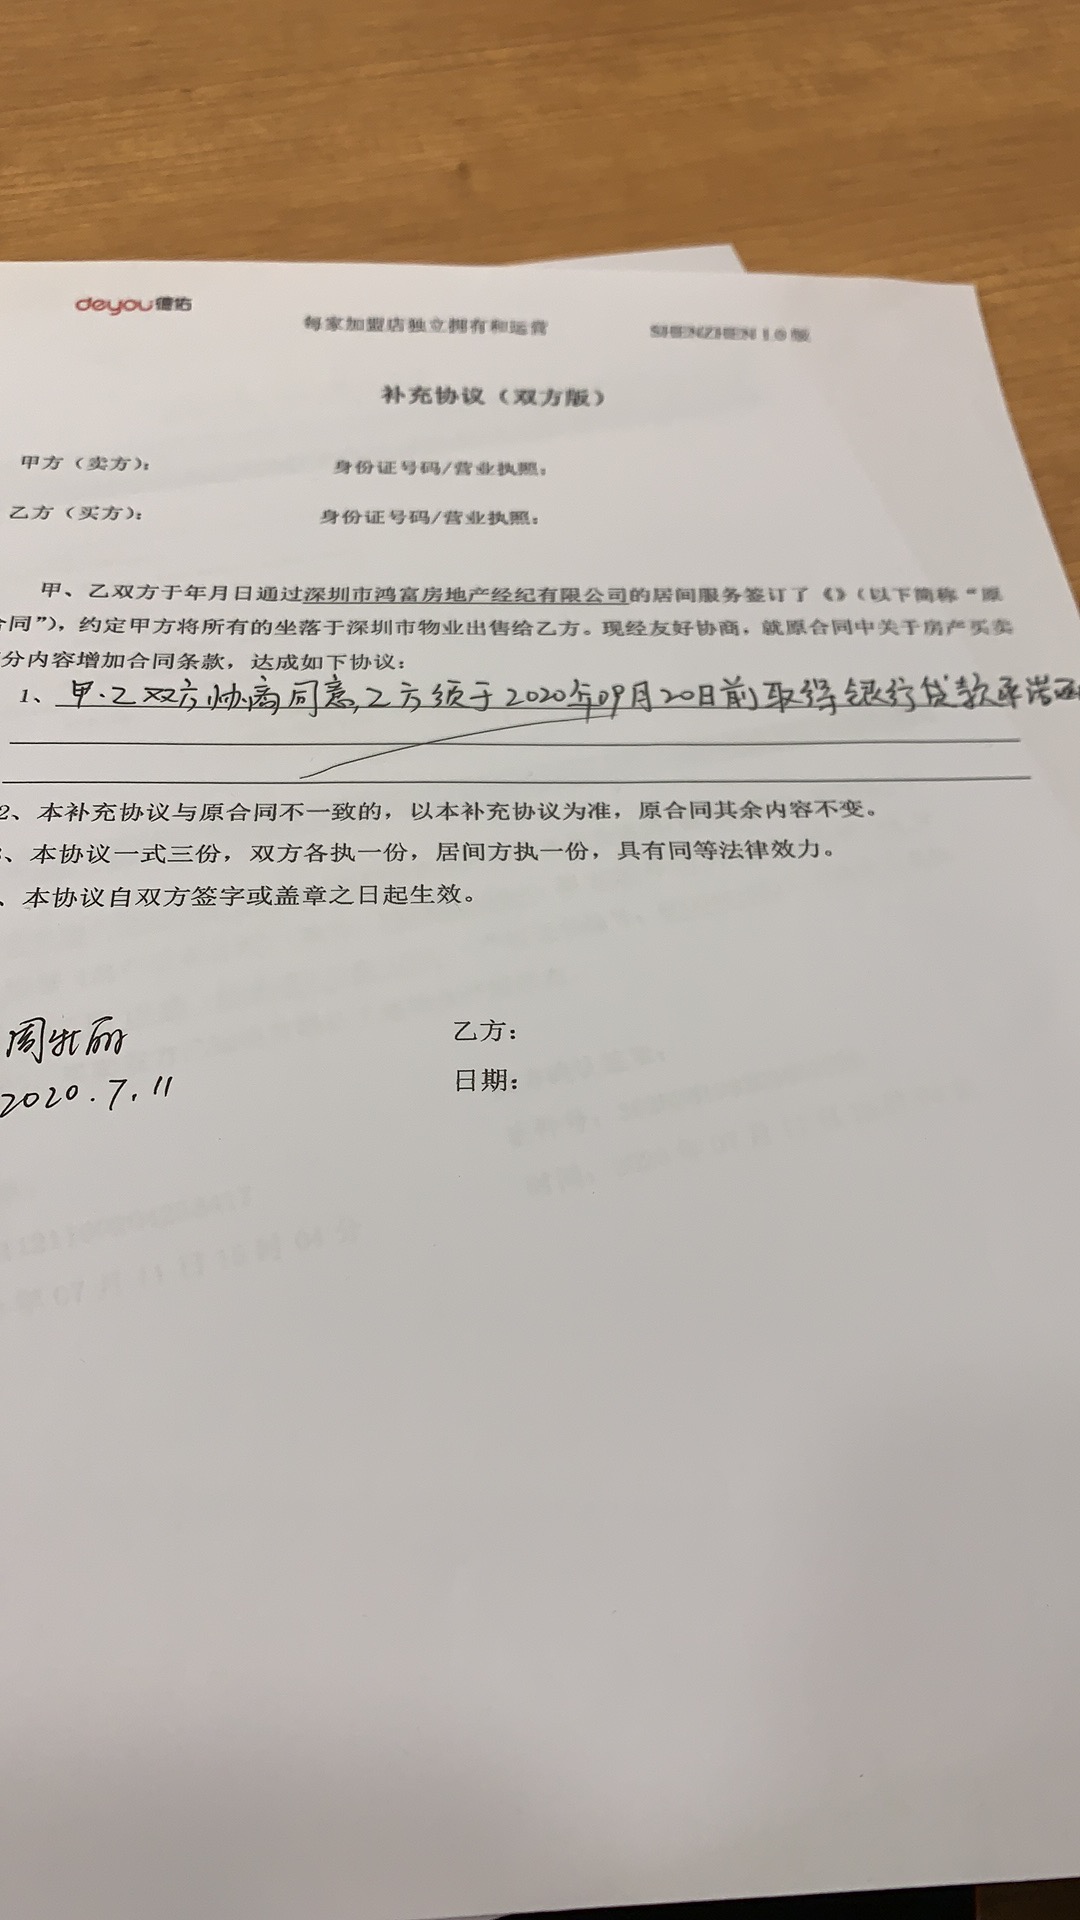 deyou德佑
每家加盟店独立拥有和运营
SHENZHEN 1.0 版
补充协议（双方版）
甲方（卖方）： 身份证号码/营业执照：
乙方（买方）： 身份证号码/营业执照：
甲、乙双方于年月日通过深圳市鸿富房地产经纪有限公司的居间服务签订了《》（以下简称“原
合同”），约定甲方将所有的坐落于深圳市物业出售给乙方。现经友好协商，就原合同中关于房产买卖
分内容增加合同条款，达成如下协议：
1、甲.乙双方协商同意,乙方须于2020年09月20日前取得银行贷款承诺函
2、本补充协议与原合同不一致的，以本补充协议为准，原合同其余内容不变。
、本协议一式三份，双方各执一份，居间方执一份，具有同等法律效力。
、本协议自双方签字或盖章之日起生效。
周 丽
2020.7.11
乙方：
日期：